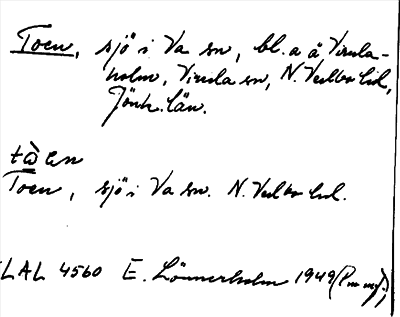 Toen, sjö i Va sn, bl. a å Virda-
holm, Virda sn, N. Vedbo hd,
Jönk. län.
tὼen
Toen, sjö i Va sn. N. Vedbo hd.
LAL 4560 E. Lönnerholm 1949